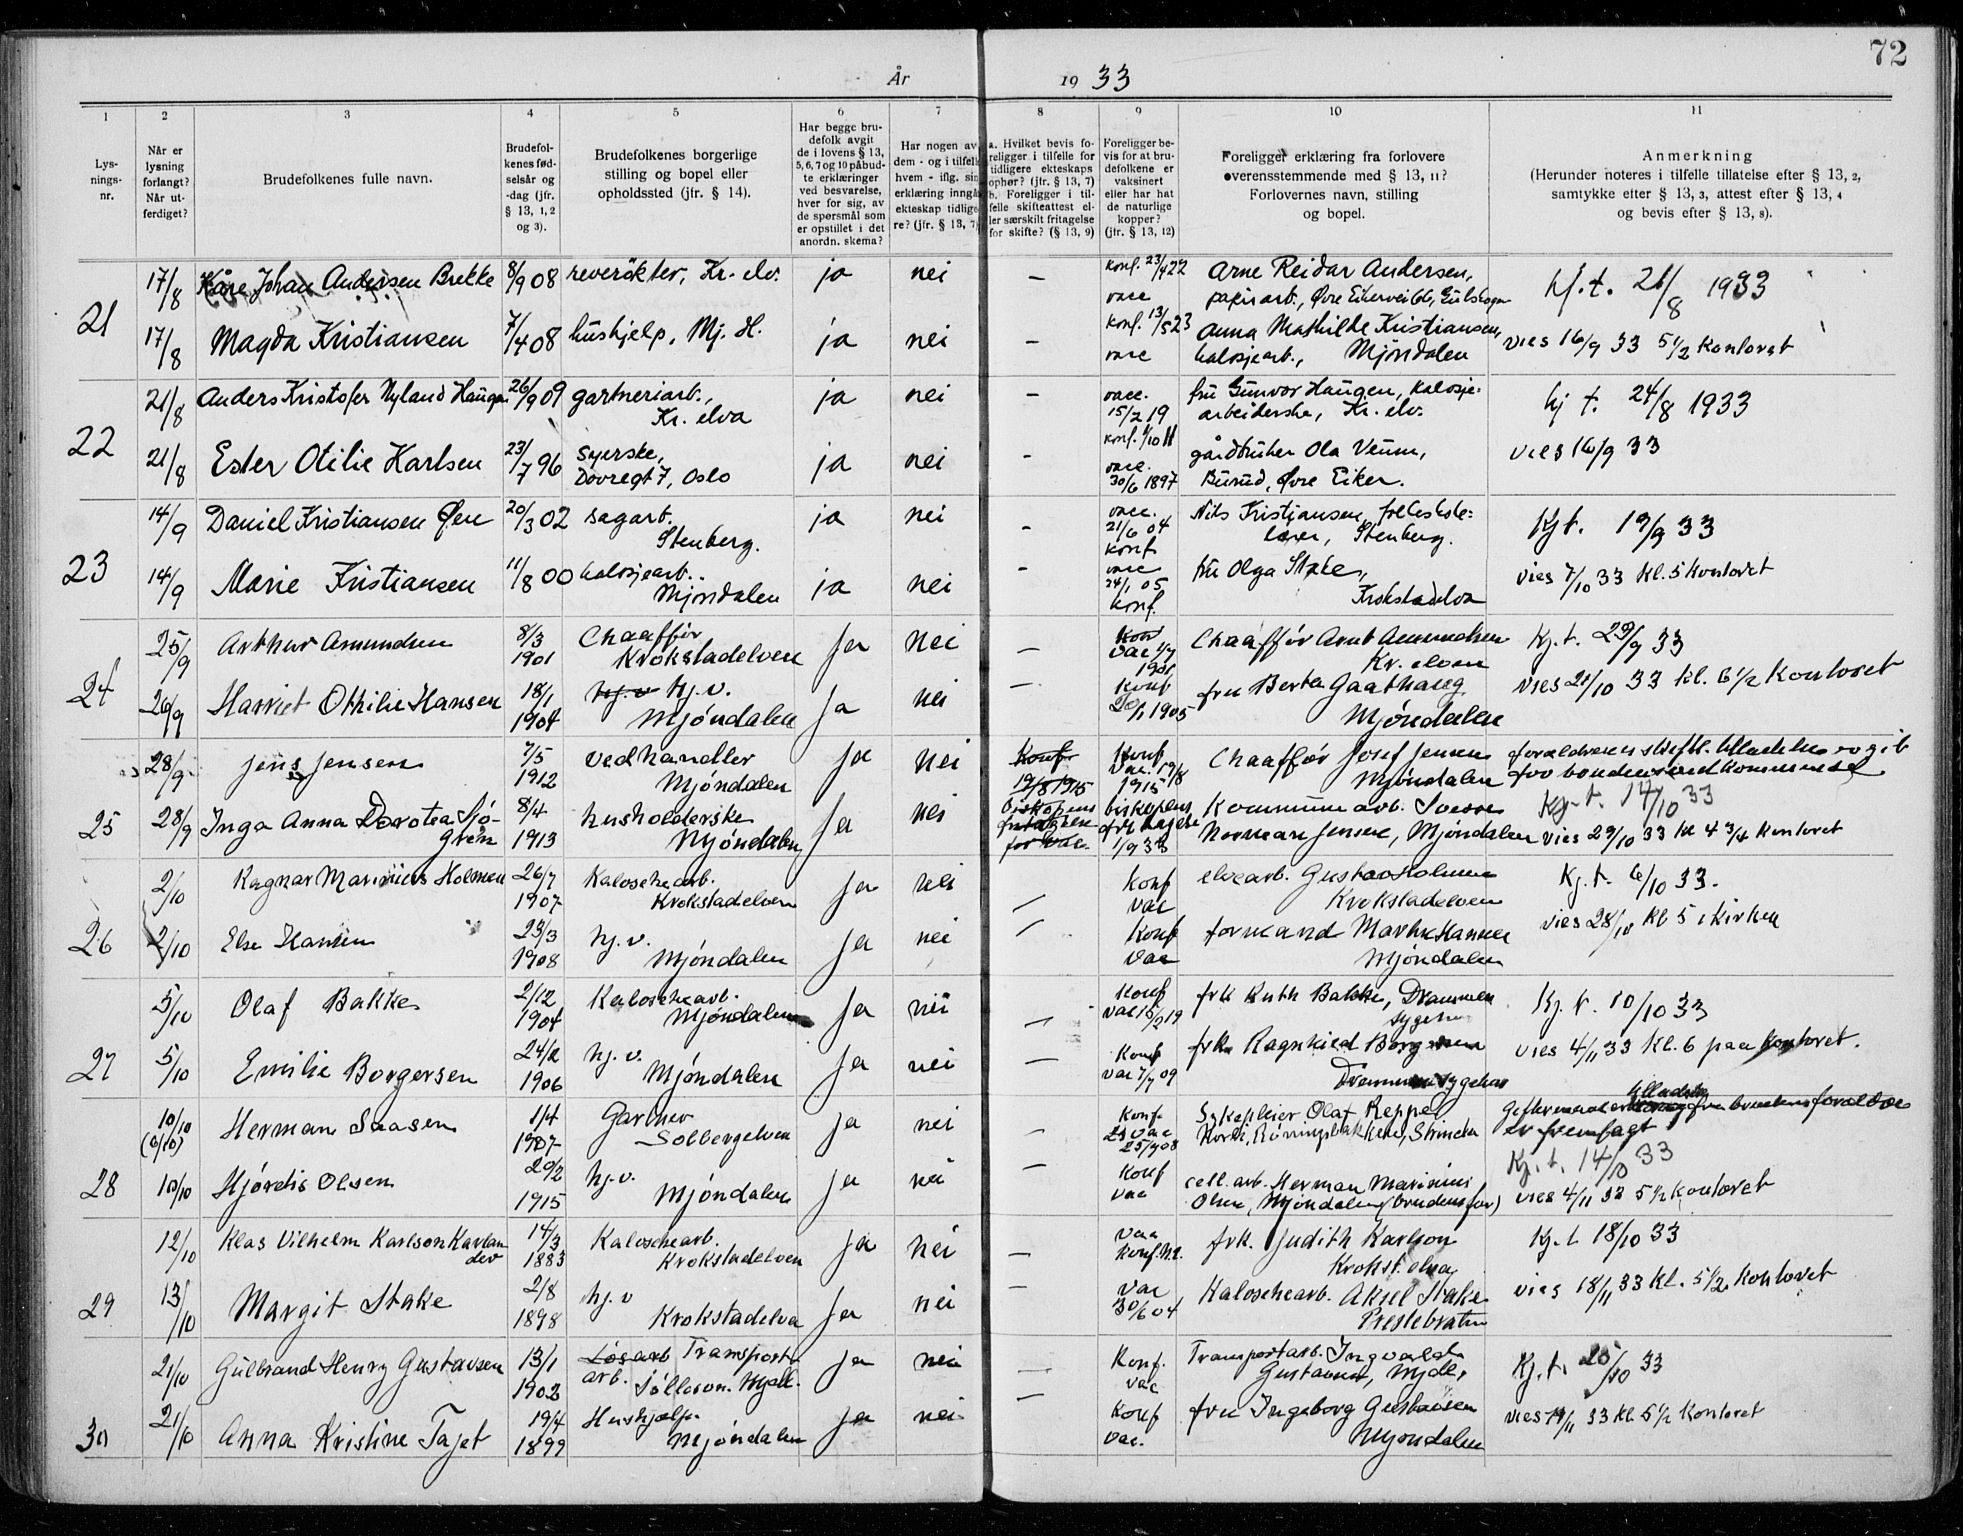 72
År 1933
1 2 3 4 5 6 7 8 9 10 11
Lys-
nings-
nr.
Når er
lysning
forlangt?
Når ut-
ferdiget?
Brudefolkenes fulle navn.
Brudefol-
kenes fød-
selsår og
-dag (jfr.
§ 13, 1, 2
og 3).
Brudefolkenes borgerlige
stilling og bopel eller
opholdssted (jfr. § 14).
Har begge bru-
defolk avgit
de i lovens § 13,
5, 6, 7 og 10 påbud-
te erklæringer
ved besvarelse,
hver for sig, av
de spørsmål som
er opstillet i det
anordn. skema?
Har nogen av
dem - og i tilfelle
hvem - iflg. sin
erklæring inngåt
ekteskap tidlige-
re? (jfr. § 13, 7)
a. Hvilket bevis fo-
religger i tilfelle for
tidligere ekteskaps
ophør? (jfr. § 13, 7)
b. Foreligger i til-
felle skifteattest el-
ler særskilt fritagelse
for skifte? (§ 13, 9)
Foreligger be-
vis for at bru-
defolkene er
vaksinert
eller har hat
de naturlige
kopper?
(jfr. § 13, 12)
Foreligger erklæring fra forlovere
overensstemmende med § 13, 11?
Forlovernes navn, stilling
og bopel.
Anmerkning
(Herunder noteres i tilfelle tillatelse efter § 13, 2,
samtykke efter § 13, 3, attest efter § 13, 4
og bevis efter § 13, 8).
21
17/8 Kåre Johan Andersen Brekke 8/9 08 reverökter, Kr. elv. ja nei — konf. 23/4 22 Arne Reidar Andersen,
vacc papirarb., Øvre Eikervei 66, Gulskogen kj. t. 21/8 1933
17/8 Magda Kristiansen 7/4 08 hushjelp, Mj. H. ja nei — konf. 13/5 23 Anna Mathilde Kristiansen,
vacc kalosjearb., Mjöndalen vies 16/9 33 5 1/2 Kontoret
22
21/8 Anders Kristofer Nyland Haugen 26/9 09 gartneriarb., ja nei — vacc. fru Gunvor Haugen, kalosje-
Kr. elva 15/7 19 arbeiderske, Kr. elv. kj t. 24/8 1933
21/8 Ester Otilie Karlsen 23/7 96 syerske, ja nei - konf. 1/10 11 gårdbruker Ola Veum,
Dovregt 7, Oslo vacc. 30/6 1897 Burud, Øvre Eiker. vies 16/9 33
23
14/9 Daniel Kristiansen Øen 20/3 02 sagarb. ja nei - vacc. Nils Kristiansen, folkeskole-
Stenberg. 21/6 04 konf lærer, Stenberg. Kj t. 19/9 33
14/9 Marie Kristiansen 11/8 00 kalosjearb. ja nei - vacc fru Olga Stake,
Mjöndalen 24/1 05 konf. Krokstadelva vies 7/10 33 kl. 5 kontoret
24
25/9 Arthur Amundsen 8/3 1901 Chaafför Ja Nei — Konf Chaafför Arnt Amundsen
Krokstadelven vac 1/7 1901 Kr. elven Kj. t. 29/9 33
26/9 Harriet Othilie Hansen 18/1 1904 hj. v hj. v. Ja nei — Konf fru Berta Gaathaug
Mjøndalen 20/1 1905 Mjøndalen vies 21/10 33 kl. 6 1/2 Kontoret
25
28/9 Jens Jensen 7/5 1912 vedhandler ja nei Konf 19/8 1915 Konf Chaafför Josef Jensen
Mjøndalen vac. 19/8 1915 Mjøndalen
28/9 Inga Anna Dorotea Sjö-
gren 8/4 1913 husholderske Ja nei biskopens fritagelse for vac. biskopens fritagelse 1/9 33 Kommunearb.
Mjøndalen Normann Jensen, Mjøndalen Kj. t. 14/10 33
vies 29/10 33 kl 4 3/4 kontoret
26
2/10 Ragnar Marinius Holmen 26/7 1907 Kaloschearb. ja nei — Konf elvearb. Gustav Holmen
Krokstadelven vac Krokstadelven Kj. t. 6/10 33.
2/10 Else Hansen 23/3 1908 hj. v. ja nei — Konf formand Hansen
Mjøndalen vac Mjøndalen vies 28/10 kl 5 i Kirken
27
5/10 Olaf Bakke 2/12 1904 Kaloschearb. ja nei — Konf frk Ruth Bakke, Drammen
Mjøndalen vac 15/2 19 sygehus Kj. t. 10/10 33
5/10 Emilie Borgersen 24/2 1906 hj. v. ja nei — Konf frk. Ragnhild Borgersen
Mjøndalen vac 7/7 09 Drammen sygehus vies 4/11 33 kl. 6 paa kontoret.
28
10/10 (6/10) Herman Saasen 1/4 1907 Gartner ja nei — Konf Sykepleier Olaf Reppe
Solbergelven vac 25/9 08 Strinda er fremlagt
Kj. t. 14/10 33
10/10 Hjørdis Olsen 20/2 1915 hj. v. ja nei — Konf cell. arb. Herman Marinius
Mjøndalen vac Olsen, Mjøndalen (brudens far) vies 4/11 33 5 1/2 kontoret
29
12/10 Klas Vilhelm Karlson Karlan
der 14/3 1883 Kaloschearb. ja nei — vac frk. Judith Karlson
Krokstadelven konf. Krokst. elva Kj. t 18/10 33
13/10 Margit Stake 2/8 1898 hj. v ja nei — vac Kaloschearb. Aksel Stake
Krokstadelva 30/6 04 Prestebraten vies 18/11 33 kl. 5 1/2 kontoret
30
21/10 Gulbrand Henry Gustavsen 13/1 1902 Løsarb Transport- ja nei — Konf. Transportarb. Ingvald
arb. Mjdl. vac Gustavsen, Mjdl. Kj. t. 25/10 33
21/10 Anna Kristine Tajet 19/4 1899 Hushjelp ja nei — Konf fru Ingeborg Gustavsen
Mjøndalen vac. Mjøndalen vies 19/11 33 kl. 5 1/2 Kontoret